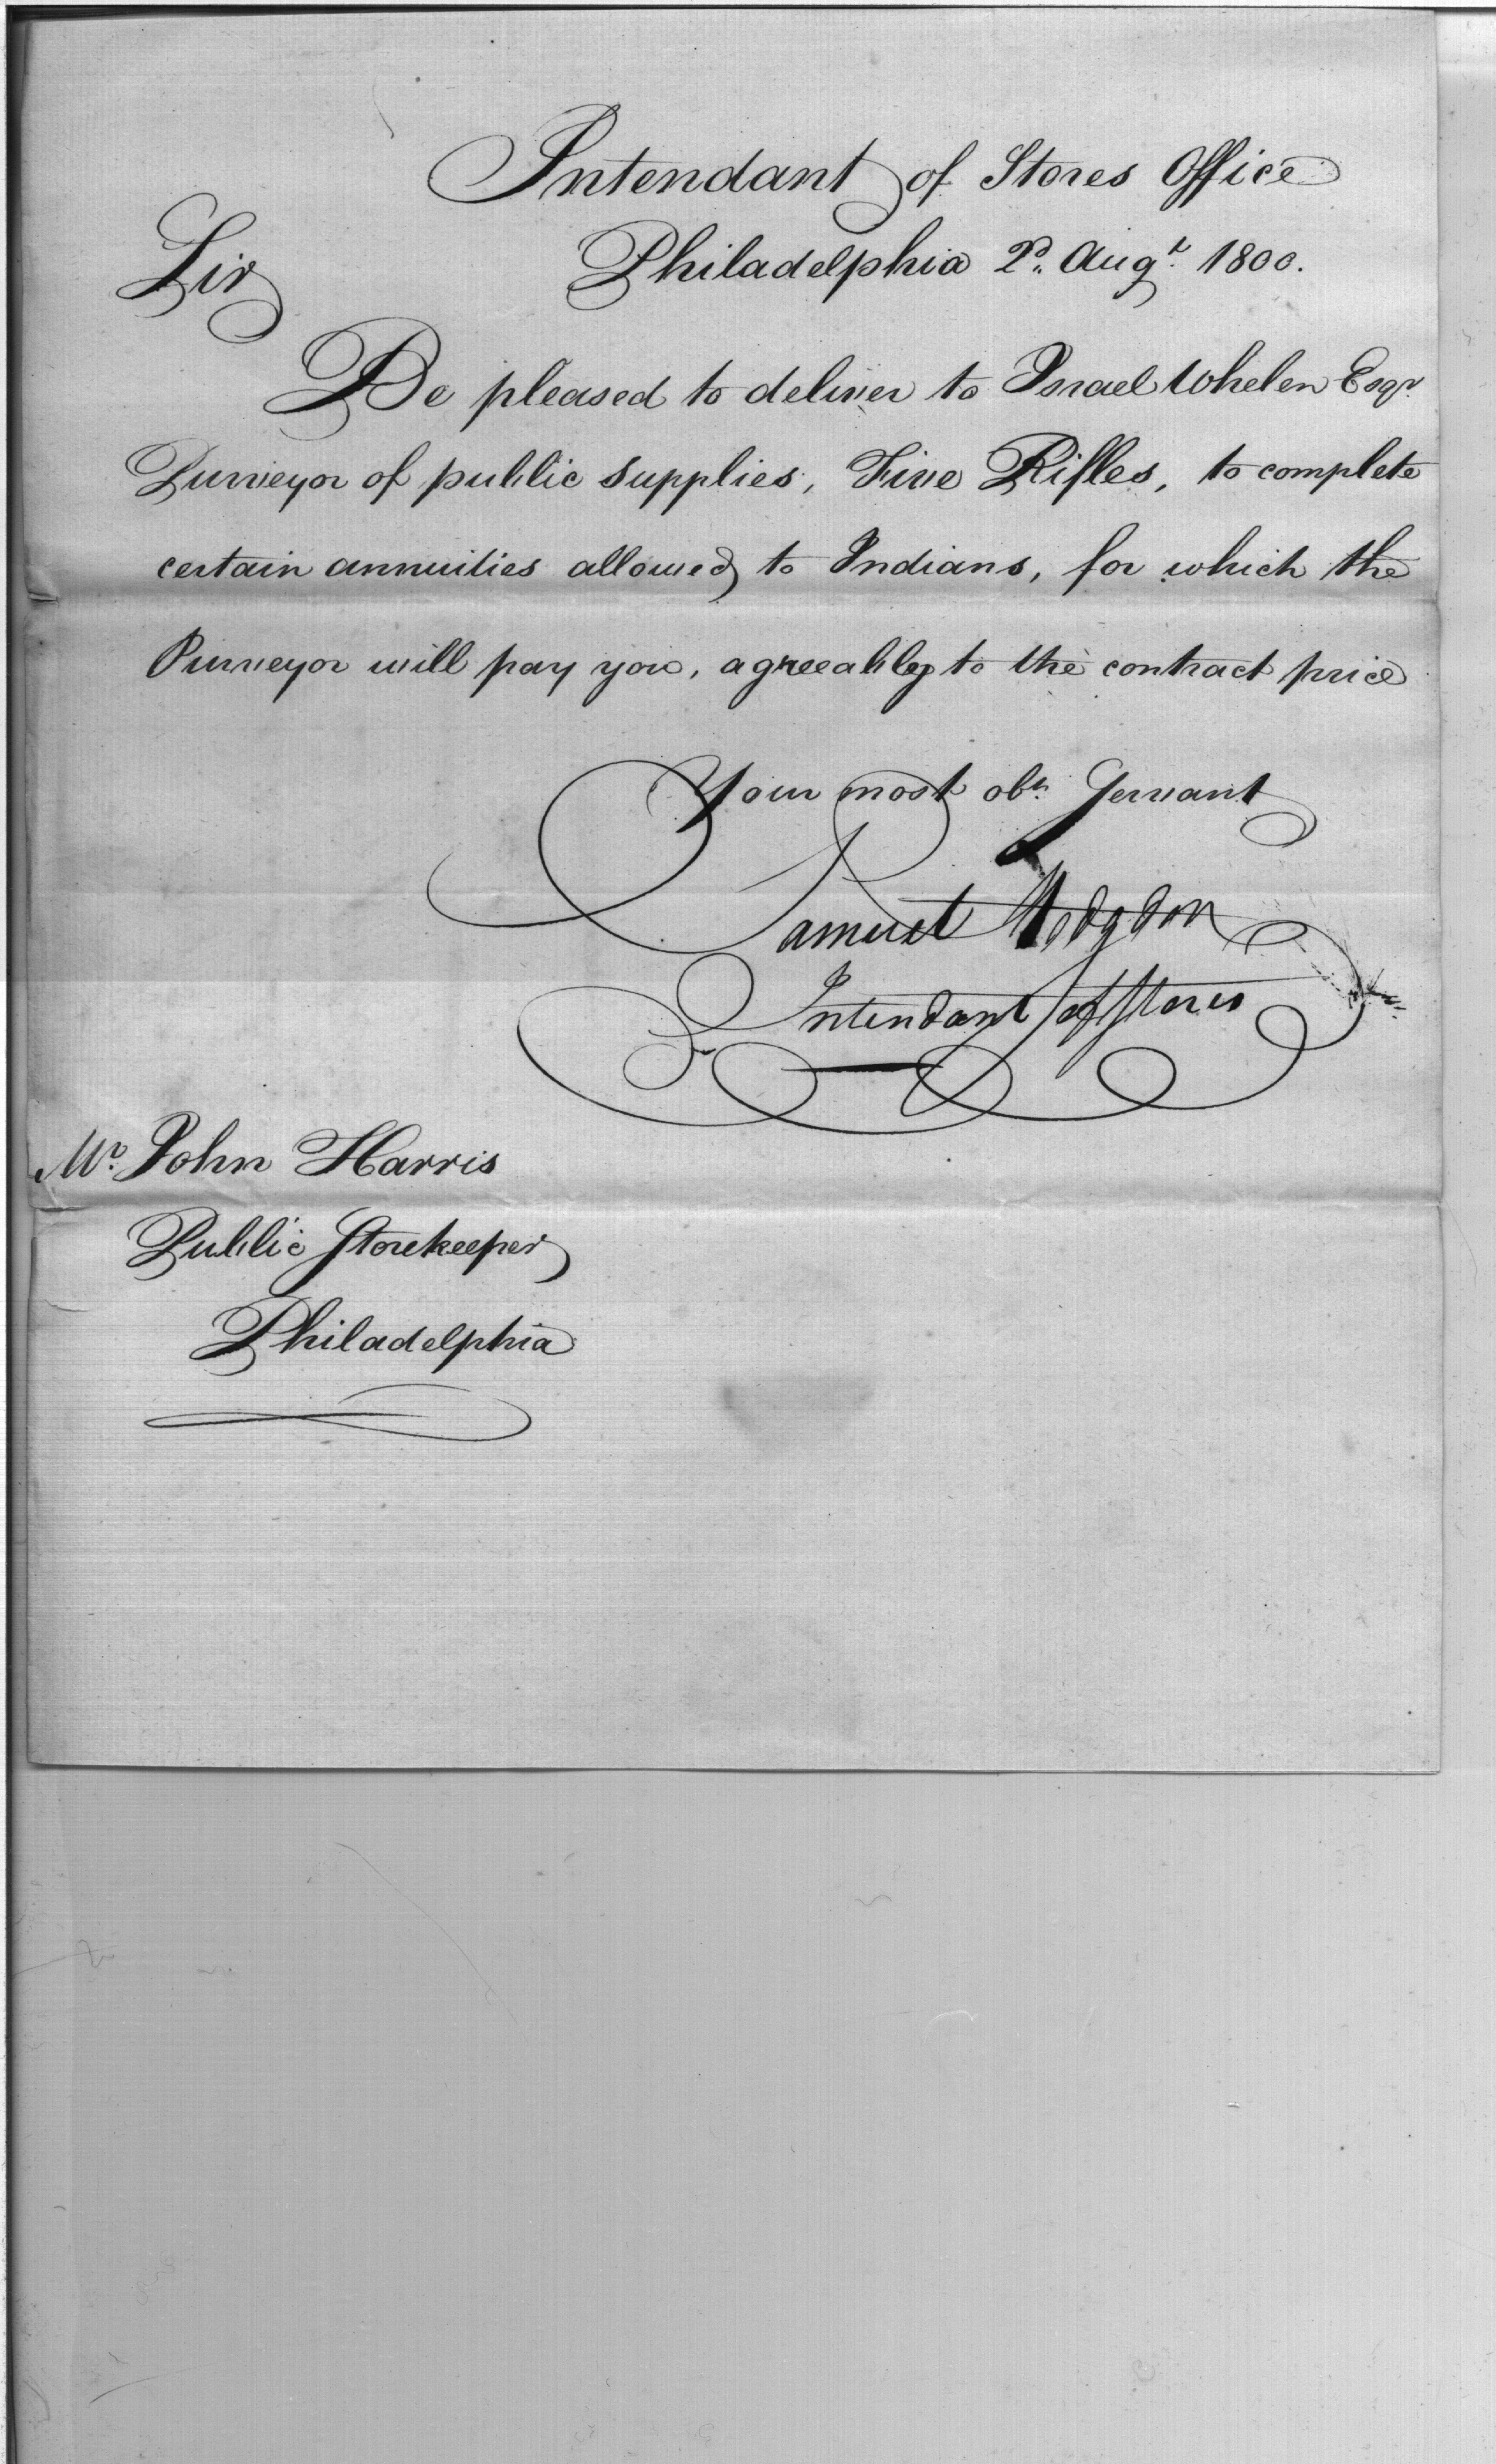 Intendant of Stores Office
Philadelphia 2d. Augt. 1800.
Sir
Be pleased to deliver to Israel Whelen Esqr.
Purveyor of public supplies, Five Rifles, to complete
certain annuities allowed to Indians, for which the
Purveyor will pay you, agreeably to the contract price
Your most obt. Servant
Samuel Hodgdon
Intendant of Stores
Mr. John Harris
Public Storekeeper
Philadelphia